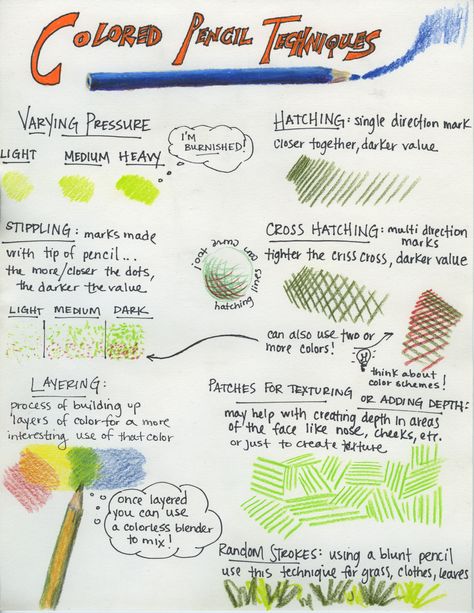 COLORED PENCIL TECHNIQUES
VARYING PRESSURE
LIGHT MEDIUM HEAVY
I'M
BURNISHED!
HATCHING: single direction mark
closer together, darker value
STIPPLING: marks made
with tip of pencil...
the more/closer the dots,
the darker the value
LIGHT MEDIUM DARK
foot can curve
hatching lines
CROSS HATCHING: multi direction
marks
tighter the criss cross, darker value
can also use two or
more colors!
think about
color schemes!
LAYERING:
process of building up
layers of color for a more
interesting use of that color
once layered
you can use
a colorless blender
to mix!
PATCHES FOR TEXTURING
OR ADDING DEPTH:
may help with creating depth in areas
of the face like nose, cheeks, etc.
or just to create texture
RANDOM STROKES: using a blunt pencil
use this technique for grass, clothes, leaves